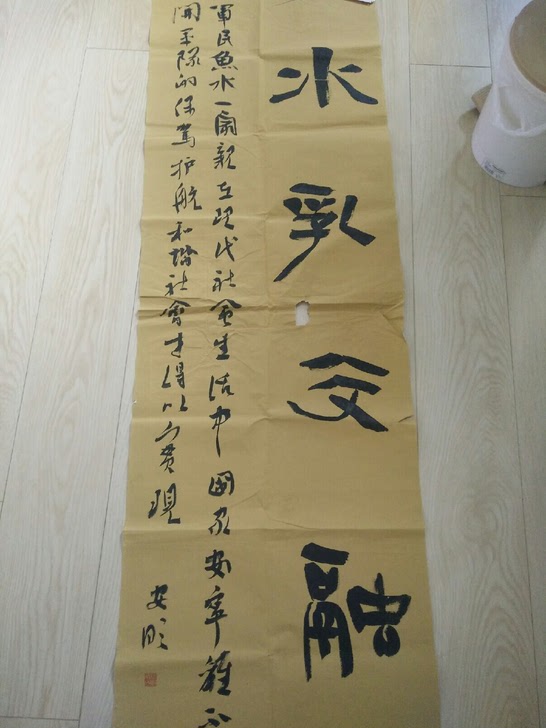 水乳交融
軍民魚水一家親在現代社會生活中國家安寧離不
開军隊的保駕护航和諧社會才得以實現
安